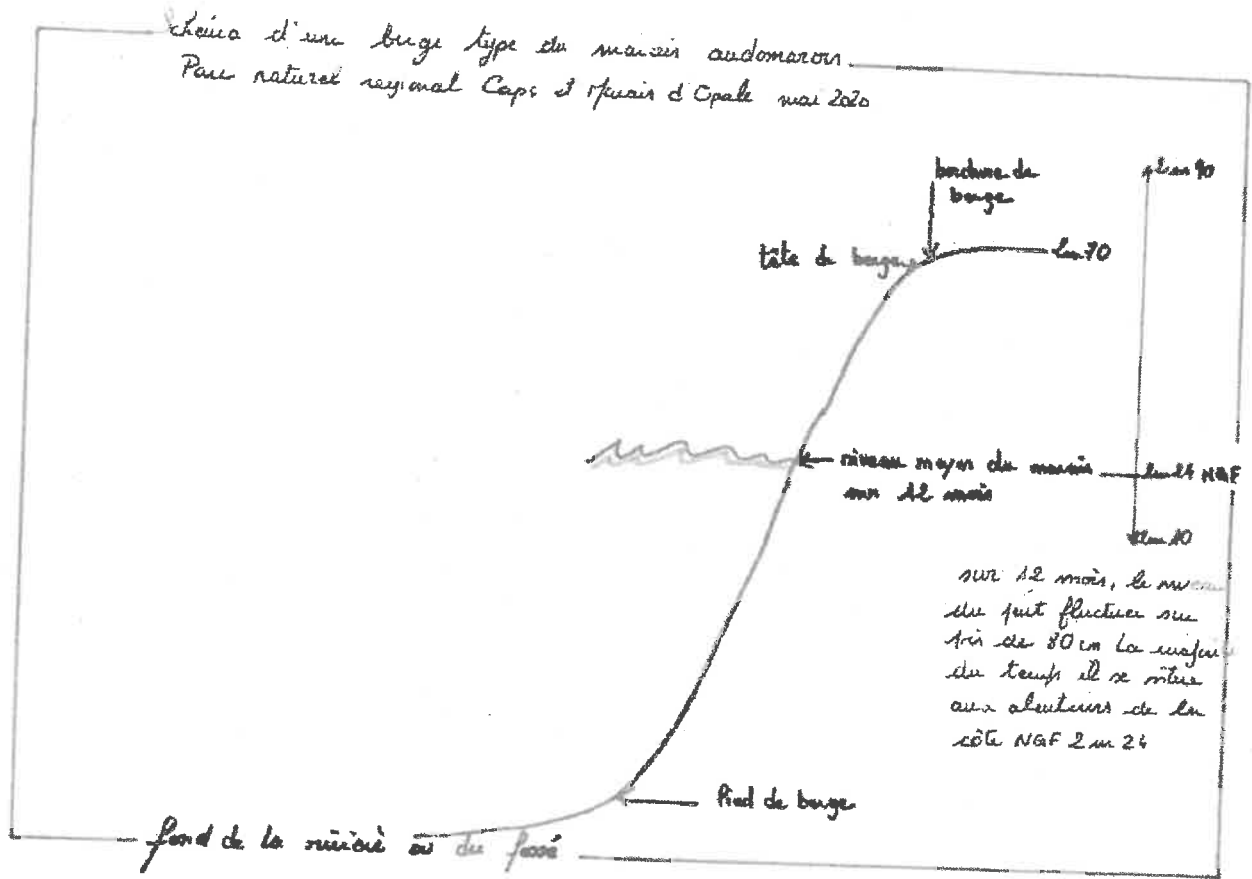 schéma d'une berge type du marais audomarois
Parc naturel regional Caps et Marais d'Opale mai 2020
bordure de
berge
2m90
tête de berge
2m70
niveau moyen du marais
sur 12 mois
2m24 NGF
2m10
sur 12 mois, le niveau
du peut fluctuer sur
près de 80 cm La majorité
du temps il se situe
aux alentours de la
côte NGF 2m24
Pied de berge
fond de la rivière ou du fossé